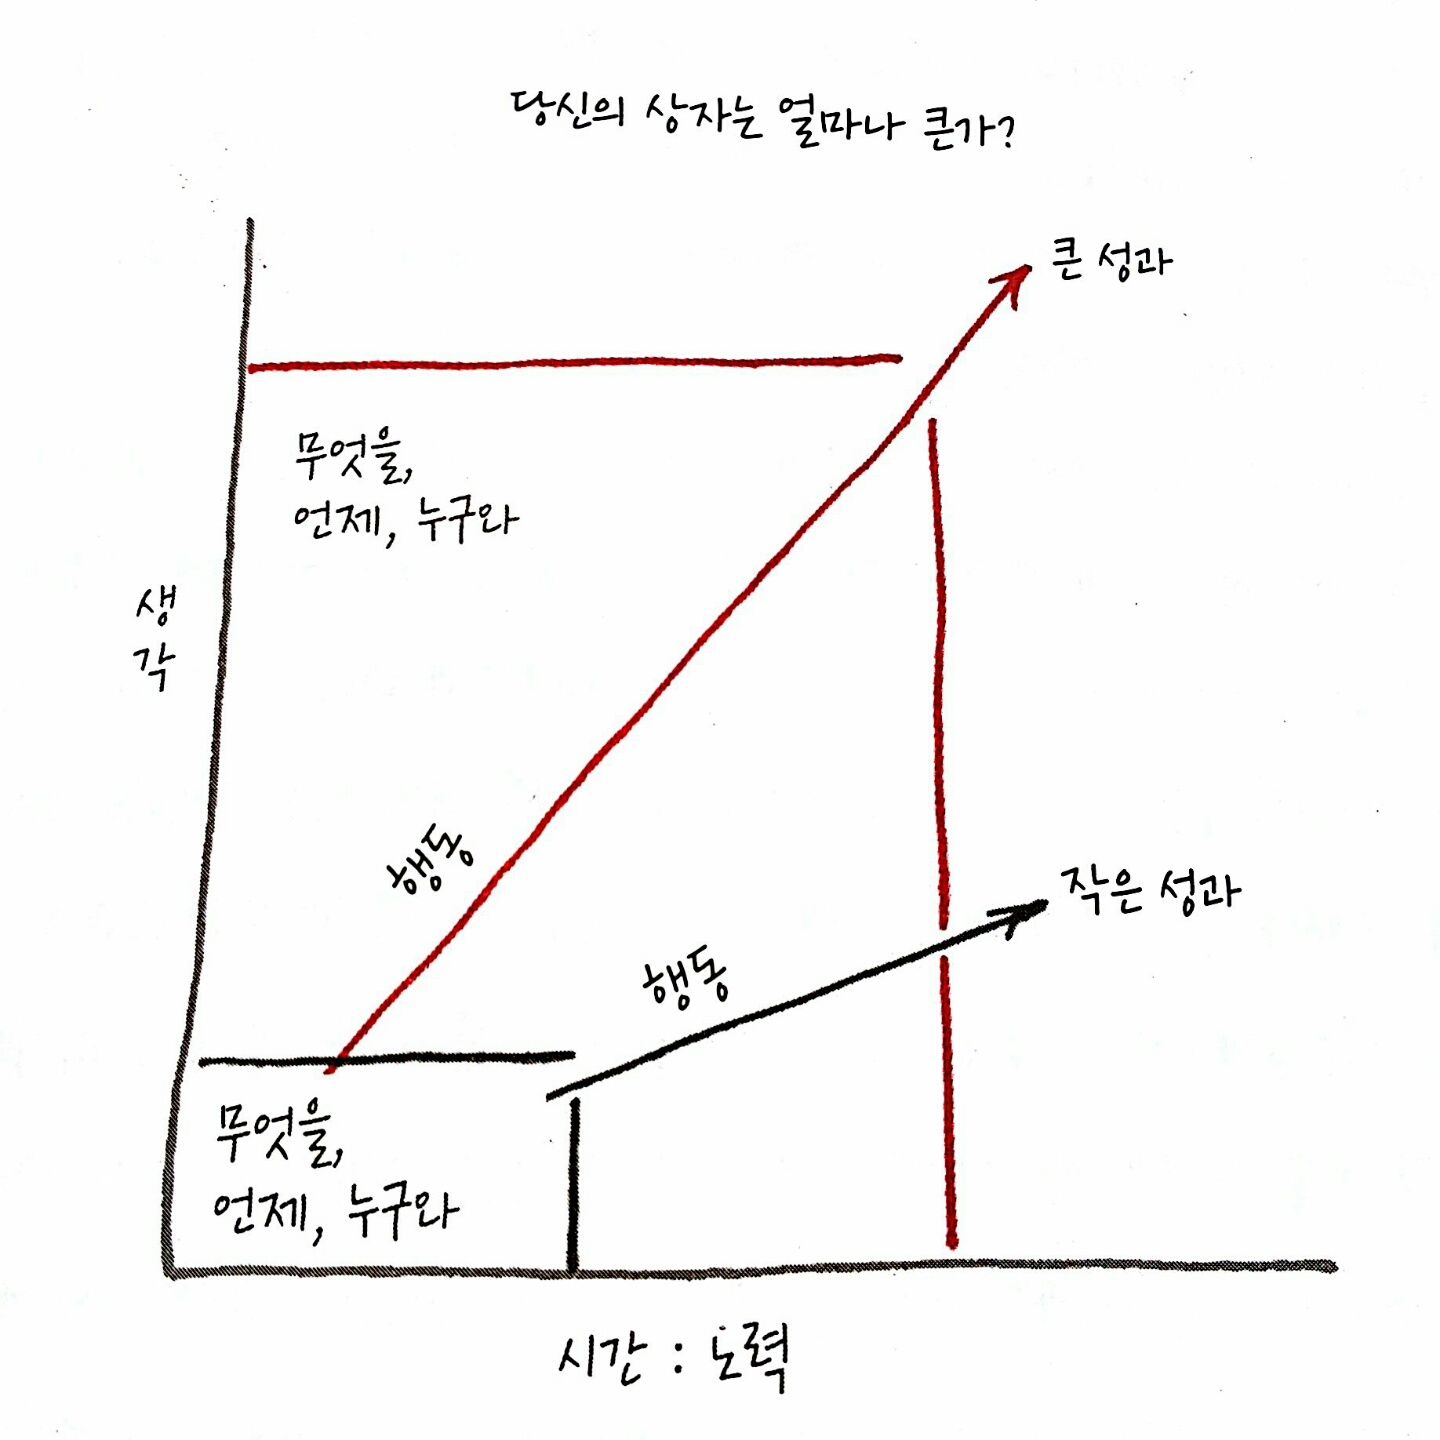 당신의 상자는 얼마나 큰가?
큰 성과
무엇을,
언제, 누구와
생
각
행동
작은 성과
행동
무엇을,
언제, 누구와
시간 : 노력